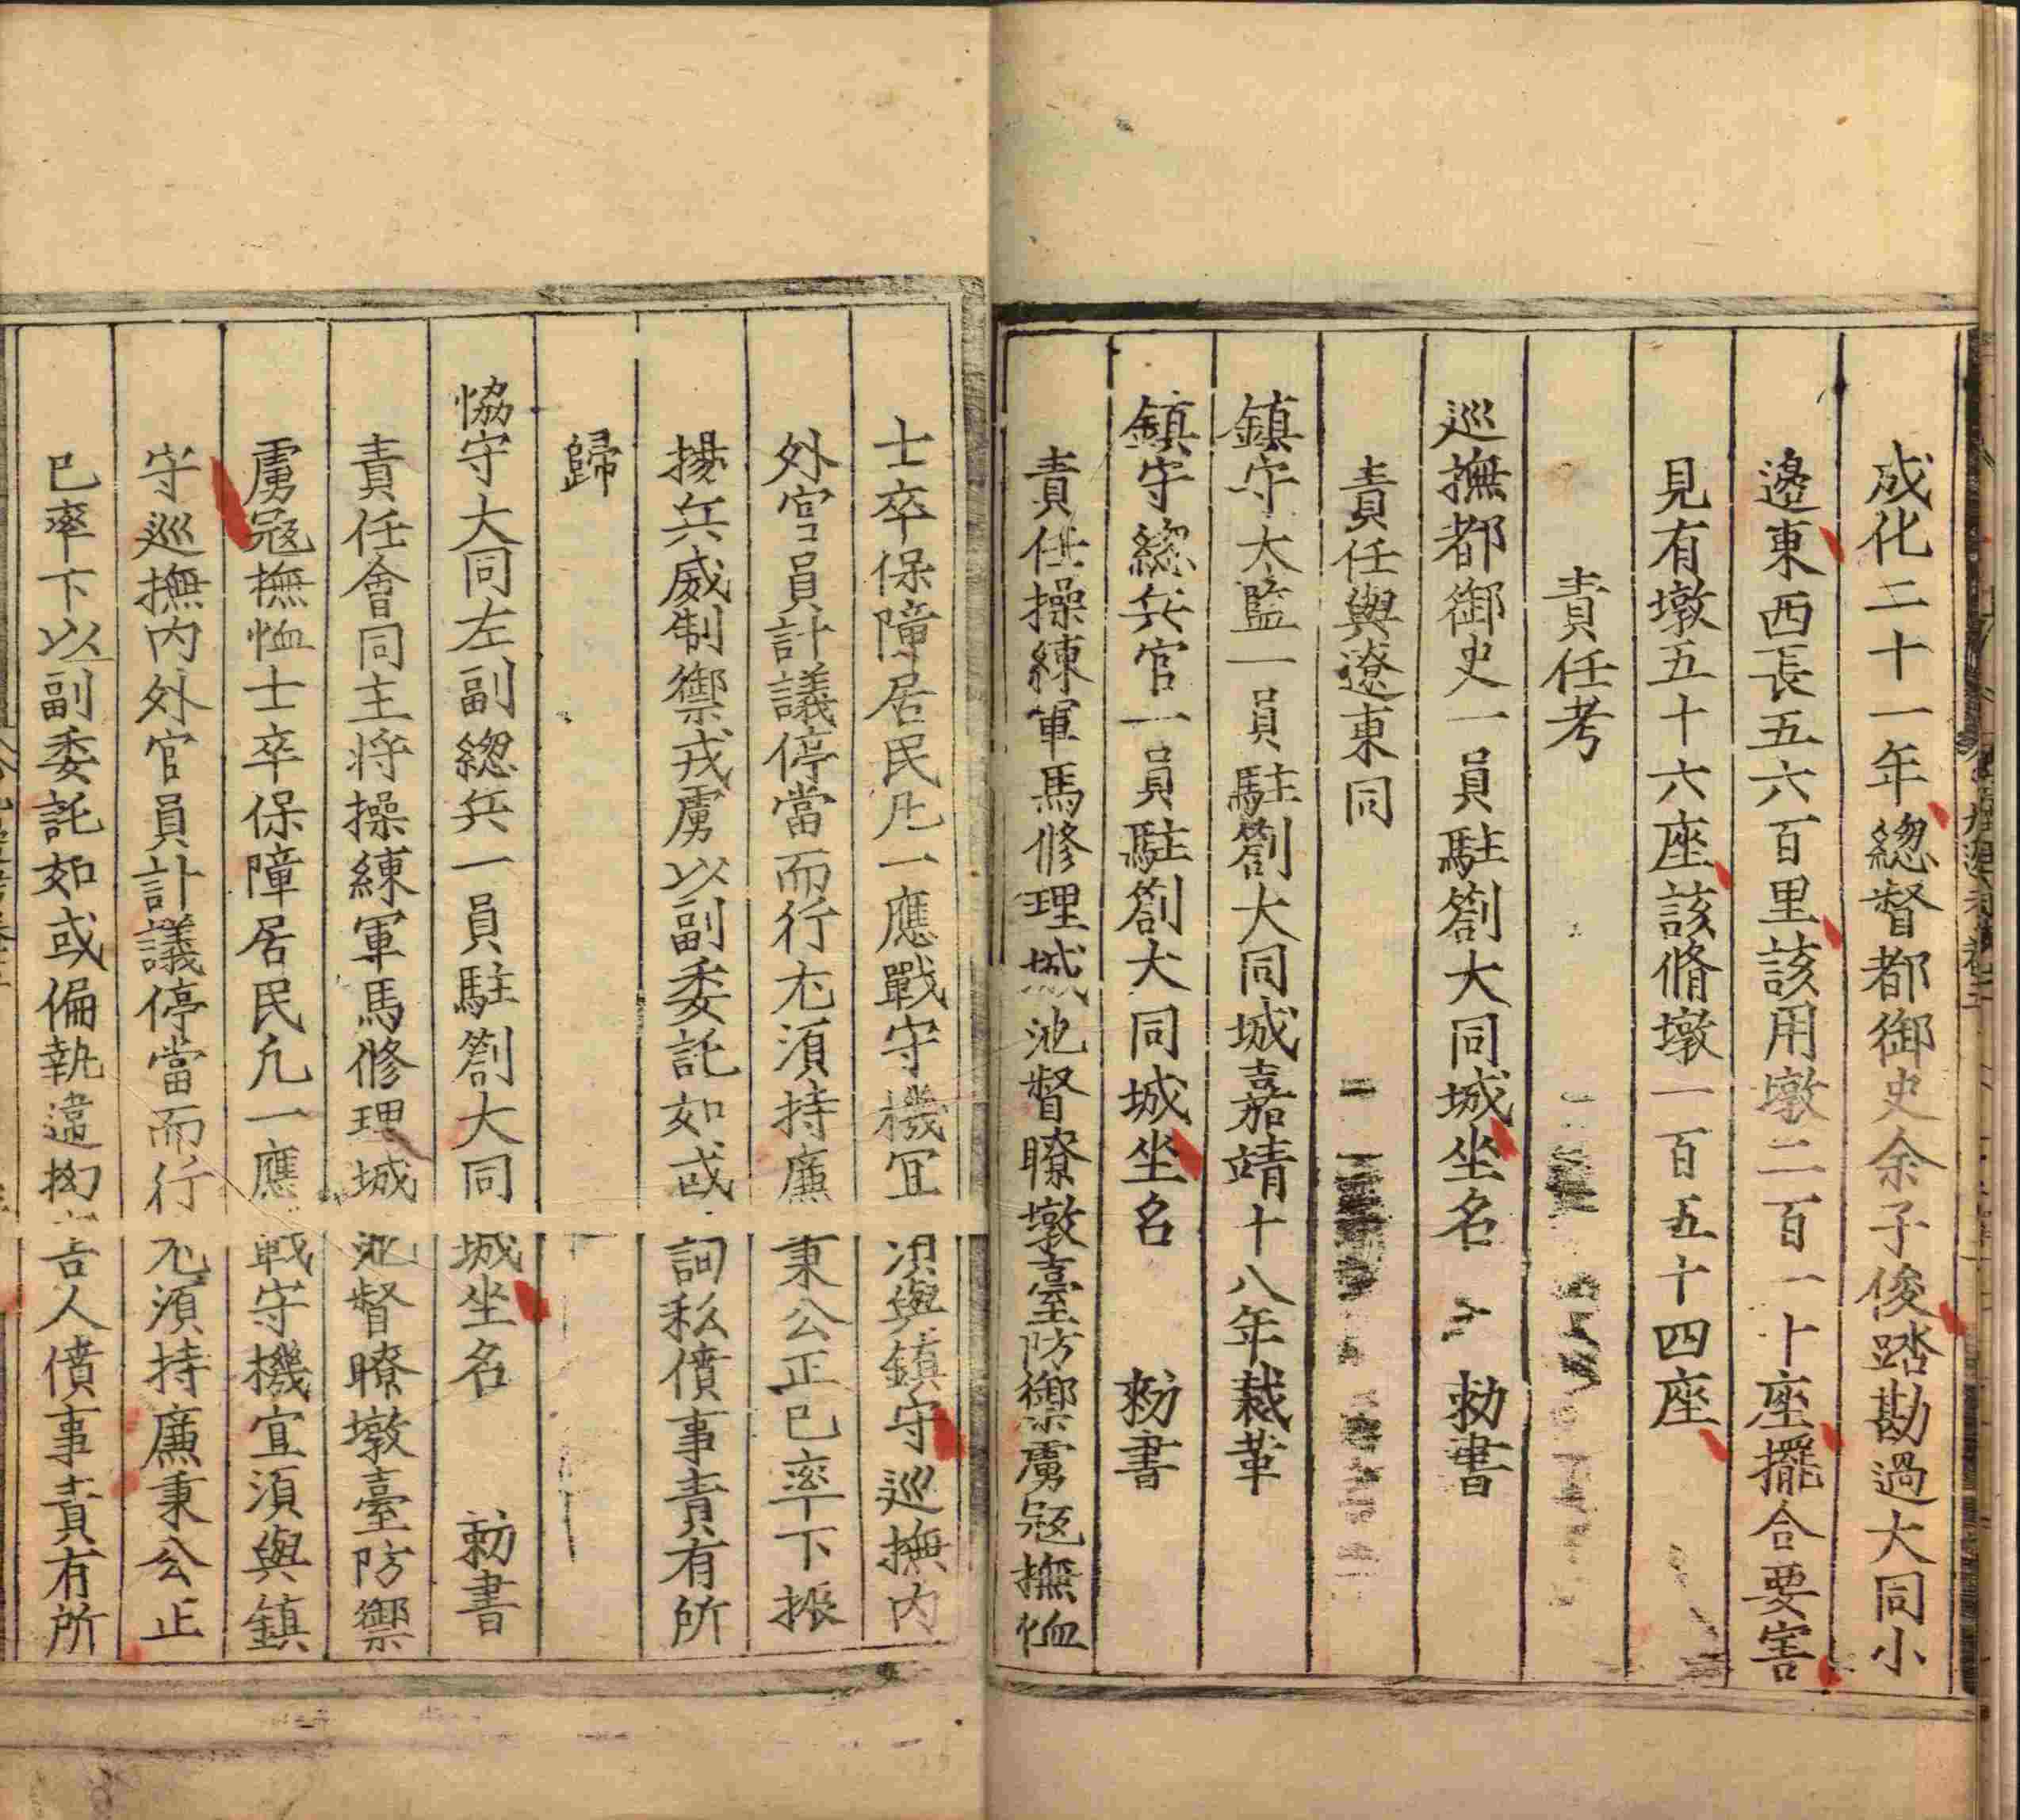 成化二十一年緫督都御史余子俊踏勘過大同小
邊東西長五六百里該用墩二百一十座擺合要害
見有墩五十六座該脩墩一百五十四座
責任考
巡撫都御史一員駐劄大同城坐名 勑書
責任與遼東同
鎮守太監一員駐劄大同城嘉靖十八年裁革
鎮守緫兵官一員駐劄大同城坐名 勑書
責任操練軍馬修理城池督瞭墩臺防禦虜冦撫恤
士卒保障居民凡一應戰守機宜須與鎮守巡撫内
外官員計議停當而行尤須持廉秉公正已率下振
揚兵威制禦戎虜以副委託如或 詞私僨事責有所
歸
恊守大同左副緫兵一員駐劄大同城坐名 勑書
責任會同主將操練軍馬修理城池督瞭墩臺防禦
虜冦撫恤士卒保障居民凡一應戰守機宜須與鎮
守巡撫内外官員計議停當而行尤須持廉秉公正
已率下以副委託如或偏執違拗害人僨事責有所